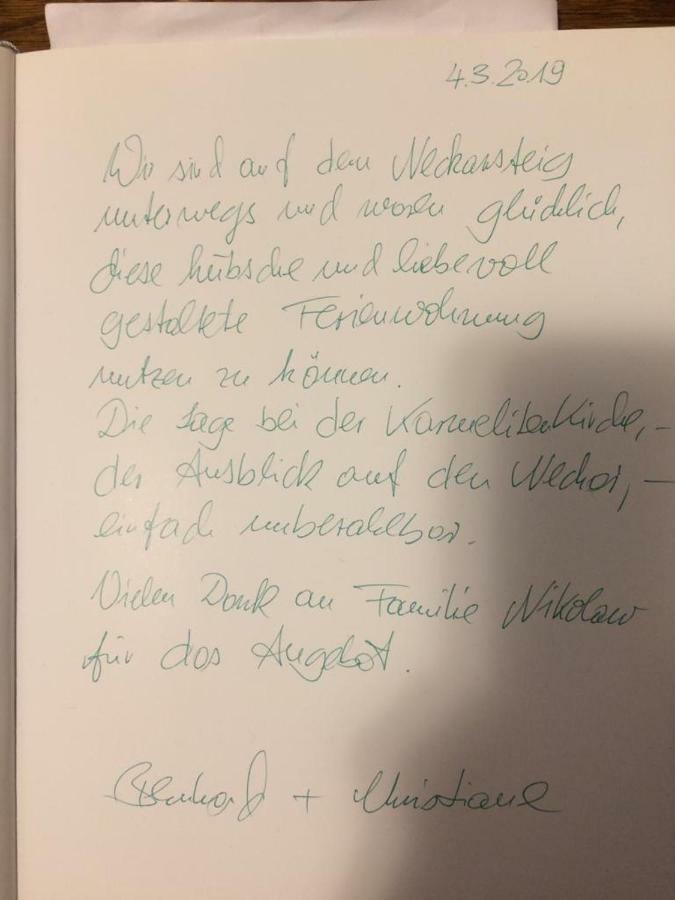 4.3.2019
Wir sind auf dem Neckarsteig
unterwegs und waren glücklich,
diese hübsche und liebevoll
gestaltete Ferienwohnung
nutzen zu können.
Die Lage bei der Karmeliterkirche, –
der Ausblick auf den Neckar, –
einfach unbezahlbar.
Vielen Dank an Familie Nikolaw
für das Angebot.
Bernhard + Christiane